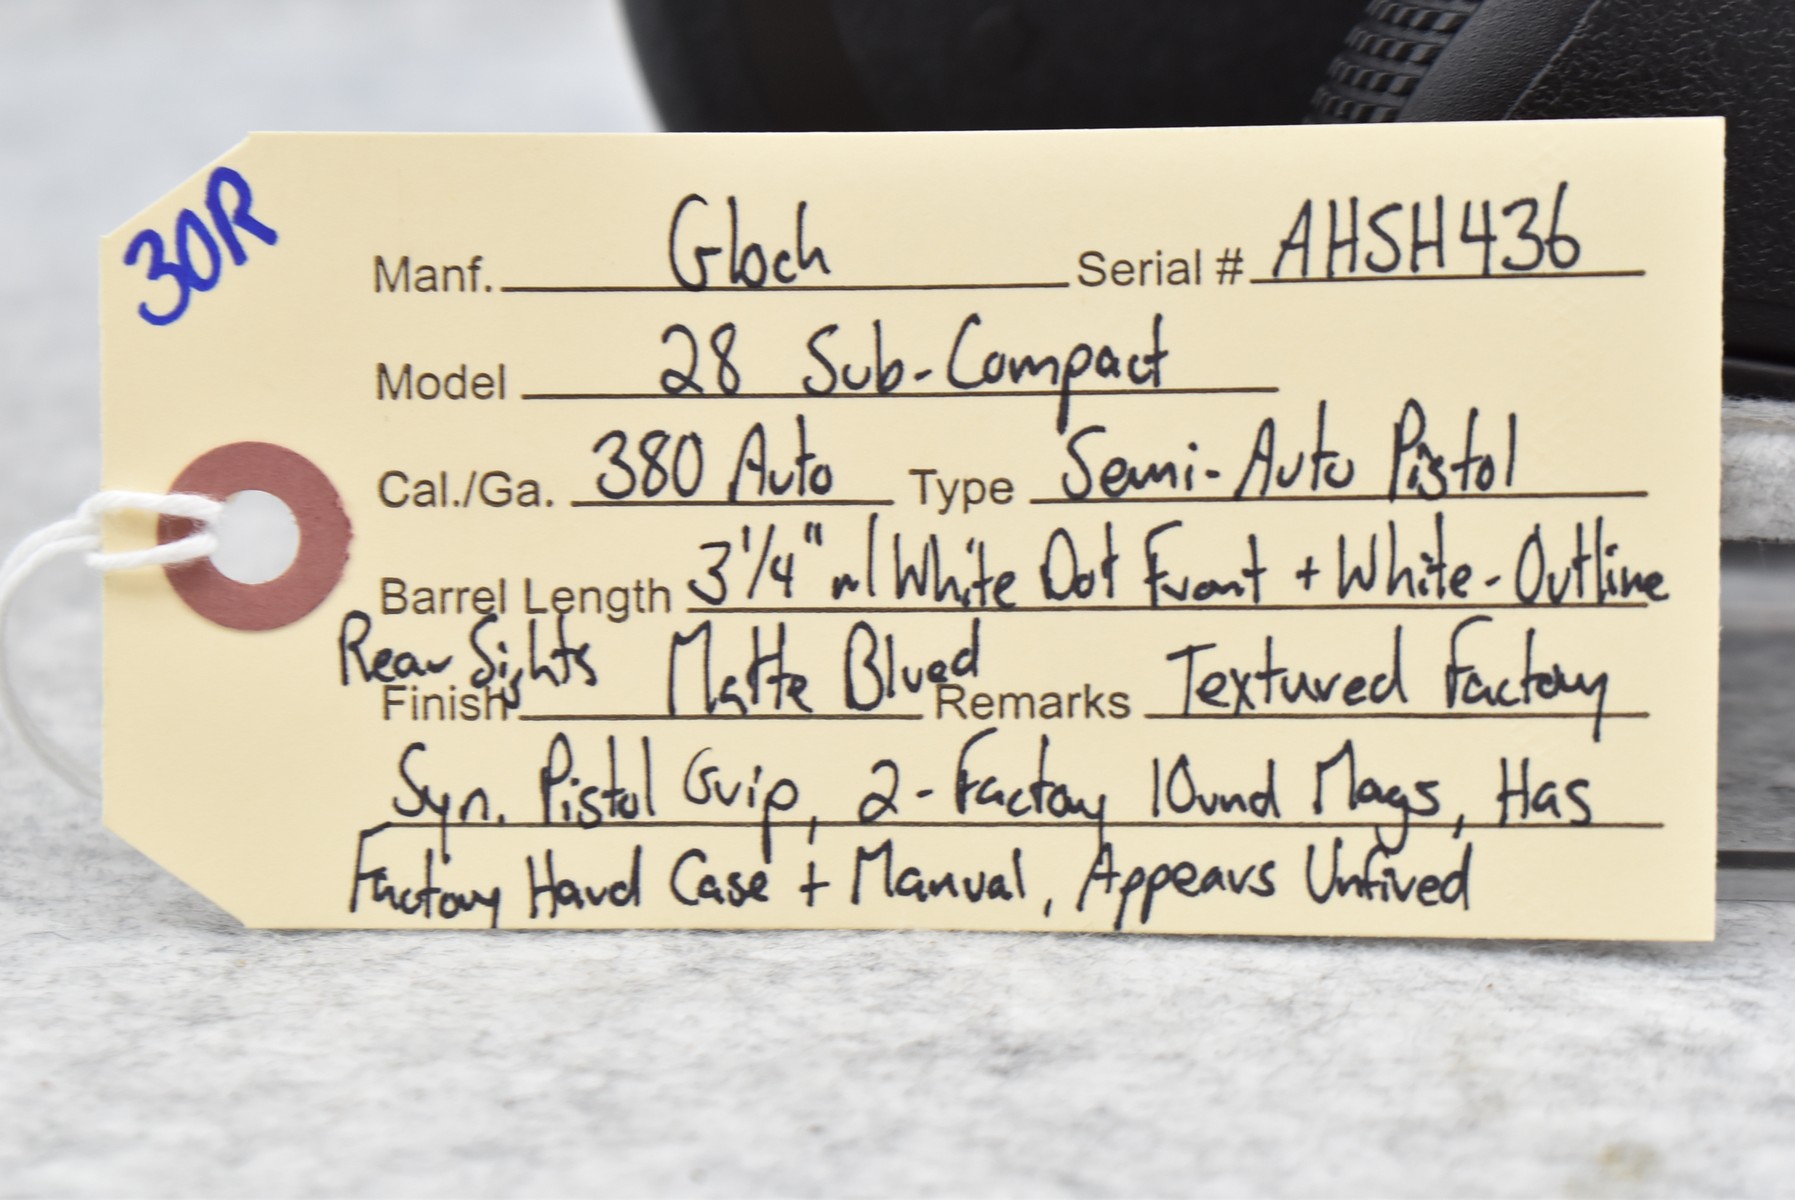 30R
Manf. Glock Serial # AHSH436
Model 28 Sub-Compact
Cal./Ga. 380 Auto Type Semi-Auto Pistol
Barrel Length 3 1/4" w/ White Dot Front + White-Outline
Rear Sights
Finish Matte Blued Remarks Textured Factory
Syn. Pistol Grip, 2-Factory 10und Mags, Has
Factory Hard Case + Manual, Appears Unfired